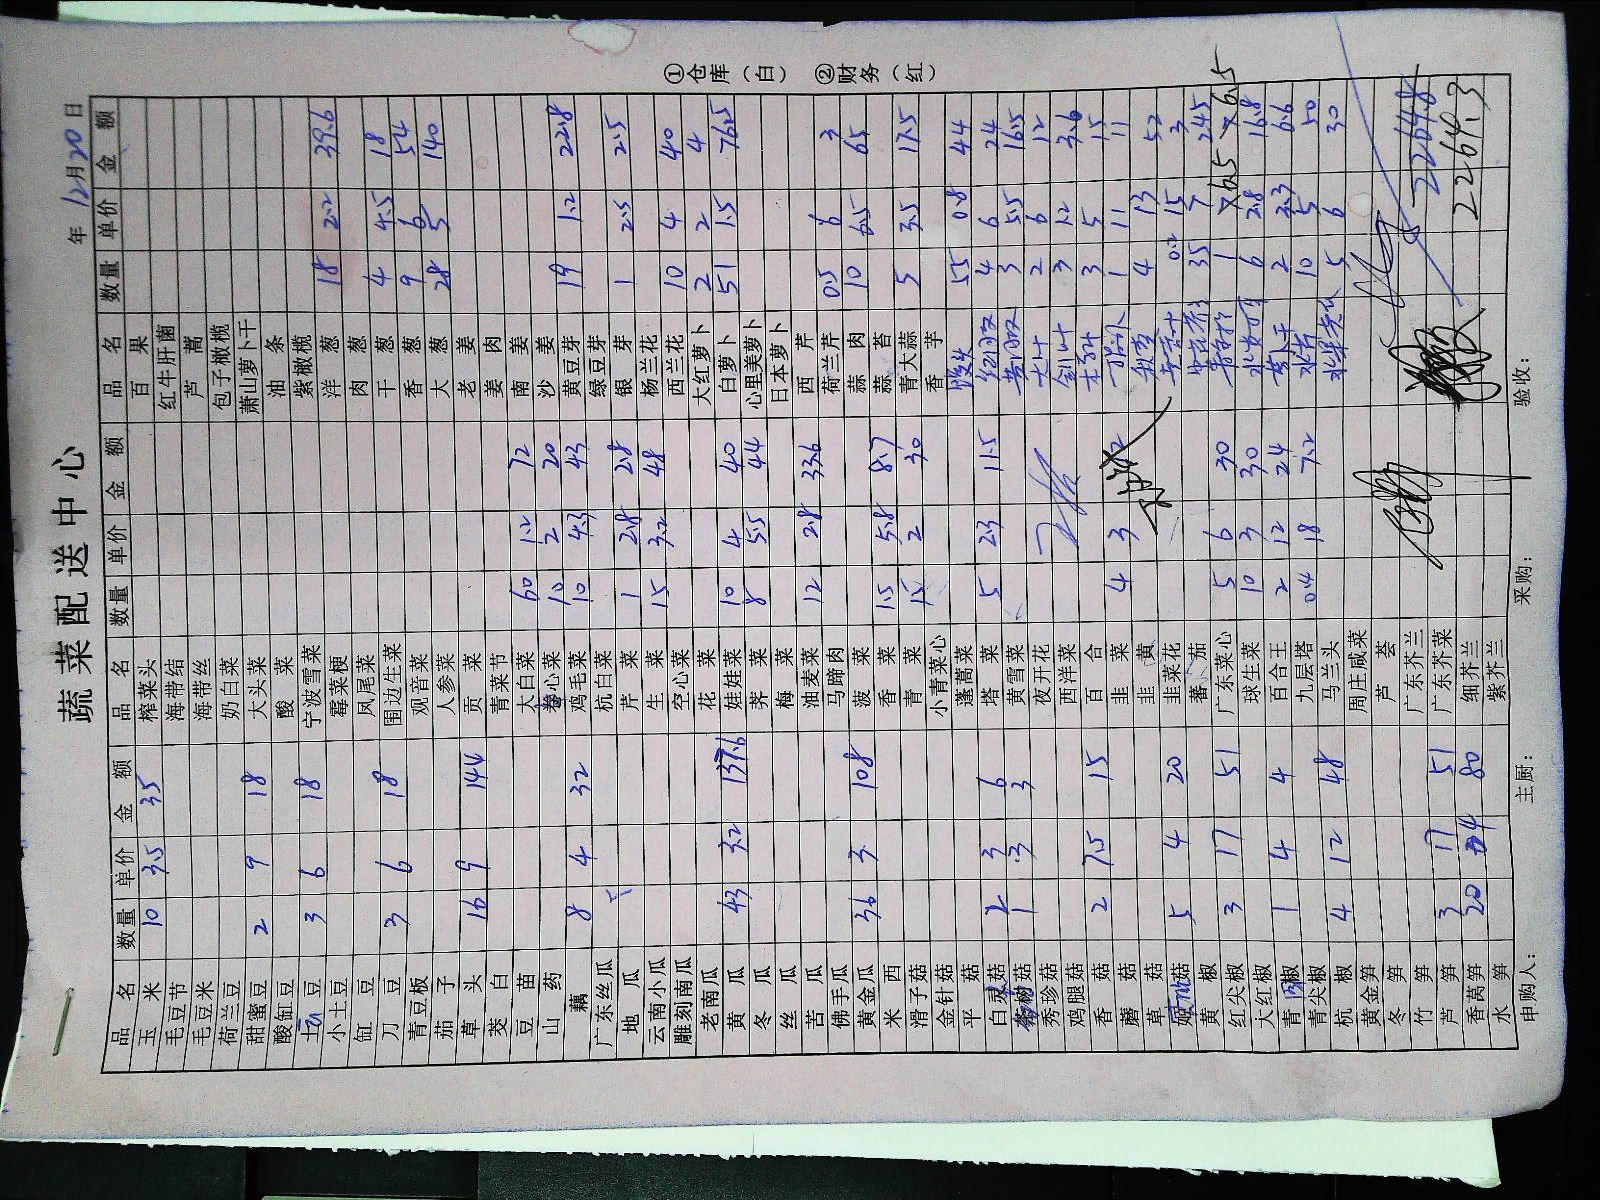 蔬菜配送中心
年 12月20日
品名 数量 单价 金额 品名 数量 单价 金额 品名 数量 单价 金额
玉米 10 3.5 35 榨菜头 百果
毛豆节 海带结 红牛肝菌
毛豆米 海带丝 芦蒿
荷兰豆 奶白菜 包子橄榄
甜蜜豆 2 9 18 大头菜 萧山萝卜干
酸缸豆 酸菜 油条
土豆 3 6 18 宁波雪菜 紫橄榄
小土豆 霉菜梗 洋葱 18 2.2 39.6
缸豆 凤尾菜 肉葱
刀豆 3 6 18 围边生菜 干葱 4 4.5 18
青豆板 观音菜 香葱 9 6 54
茄子 人参菜 大葱 28 5 140
草头 16 9 144 贡菜 老姜
茭白 青菜节 姜肉
豆苗 大白菜 60 1.2 72 南姜
山药 卷心菜 10 2 20 沙姜
藕 8 4 32 鸡毛菜 10 4.3 43 黄豆芽 19 1.2 22.8
广东丝瓜 杭白菜 绿豆芽
地瓜 芹菜 1 2.8 2.8 银芽 1 2.5 2.5
云南小瓜 生菜 15 3.2 48 杨兰花
雕刻南瓜 空心菜 西兰花 10 4 40
老南瓜 花菜 大红萝卜 2 2 4
黄瓜 43 3.2 137.6 娃娃菜 10 4 40 白萝卜 51 1.5 76.5
冬瓜 荠菜 8 5.5 44 心里美萝卜
丝瓜 梅菜 日本萝卜
苦瓜 油麦菜 12 2.8 33.6 西芹
佛手瓜 马蹄肉 荷兰芹 0.5 6 3
黄金瓜 36 3 108 菠菜 蒜肉 10 6.5 65
米西 香菜 1.5 5.8 8.7 蒜苔
滑子菇 青菜 15 2 30 青大蒜 5 3.5 17.5
金针菇 小青菜心 香芋
平菇 蓬蒿菜 55 0.8 44
白灵菇 2 3 6 塔菜 5 2.3 11.5 4 6 24
茶树菇 1 3 3 黄雪菜 3 5.5 16.5
秀珍菇 夜开花 大叶 2 6 12
鸡腿菇 西洋菜 3 1.2 3.6
香菇 2 7.5 15 百合 3 5 15
蘑菇 韭菜 4 3 12 1 11 11
草菇 韭黄 4 13 52
姬菇 5 4 20 韭菜花 0.2 15 3
黄椒 番茄 35 7 245
红尖椒 3 17 51 广东菜心 5 6 30 1 7.65 7.65
大红椒 球生菜 10 3 30 6 2.8 16.8
青椒 1 4 4 百合王 2 12 24 2 3.3 6.6
青尖椒 九层塔 0.4 18 7.2 10 5 50
杭椒 4 12 48 马兰头 5 6 30
黄金笋 周庄咸菜
冬笋 芦荟
竹笋 广东芥兰 2264.8
芦笋 3 17 51 广东芥菜 2264.3
香莴笋 20 4 80 细芥兰
水笋 紫芥兰
申购人： 主厨： 采购： 验收：
①仓库（白） ②财务（红）